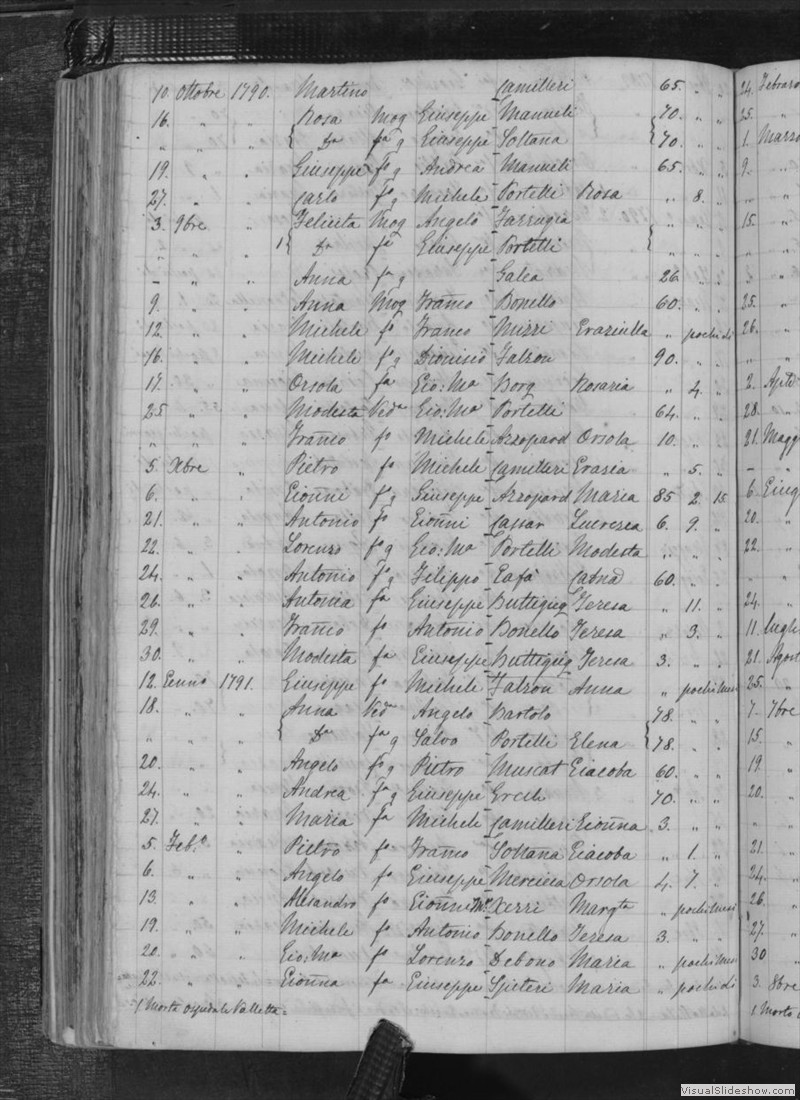 10 Ottobre 1790. Martino Camilleri 65. " "
16. " " Rosa Mog Giuseppe Manueli 70. " "
" " " Da fa g Giuseppe Soltana 70. " "
19. " " Giuseppe fo g Andrea Manueli 65. " "
27. " " Carlo fo g Michele Portelli Rosa " 8. "
3. 9bre " Felicita Mog Angelo Farrugia " " "
" " " 1 Da fa Giuseppe Portelli " " "
– " " Anna fa g Galea 26. " "
9. " " Anna Mog Franco Bonello 60. " "
12. " " Michele fo Franco Mizzi Graziulla " pochi di
16. " " Michele fo g Dionisio Falzon 90. " "
17. " " Orsola fa Gio: Ma Borg Rosaria " 4. "
25 " " Modesta Veda Gio: Ma Portelli 64. " "
" " " Franco fo Michele Azzopard Orsola 10. " "
5. Xbre " Pietro fo Michele Camilleri Grazia " 5. "
6. " " Gionni fo g Giuseppe Azzopard Maria 85 2. 15.
21. " " Antonio fo Gionni Cassar Lucrezia 6. 9. "
22. " " Lorenzo fo g Gio: Ma Portelli Modesta " " "
24. " " Antonio fo g Filippo Cafà 60. " "
26. " " Antonia fa Giuseppe Buttigieg Teresa " 11. "
29. " " Franco fo Antonio Bonello Teresa " 3. "
30. " " Modesta fa Giuseppe Buttigieg Teresa 3. " "
12. Genno 1791. Giuseppe fo Michele Falzon Anna " pochi mesi
18. " " Anna Veda Angelo Bartolo 78. " "
" " " Da fa g Salvo Portelli Elena 78. " "
20. " " Angelo fo g Pietro Muscat Giacoba 60. " "
24. " " Andrea fa g Giuseppe Grech 70. " "
27. " " Maria fa Michele Camilleri Gionna 3. " "
5. Feb.o " Pietro fo Franco Soltana Giacoba " 1. "
6. " " Angelo fo Giuseppe Mercieca Orsola 4. 7. "
13. " " Alesandro fo Gionni Ma Xerri Margta " pochi mesi
19. " " Michele fo Antonio Bonello Teresa 3. " "
20. " " Gio: Ma fo Lorenzo Debono Maria " pochi mesi
22. " " Gionna fa Giuseppe Spiteri Maria " pochi di
1 Morta Ospidale Valletta=
24. Febraro
25. "
1. Marzo
9. "
15. "
25. "
26. "
2. Aple
28. "
21. Magg
6. Giug
20. "
22. "
24. "
11. Lugli
21. Agost
25. "
7. 7bre
15. "
19. "
20. "
21. "
24. "
26. "
27. "
30 "
3. 8bre
1. Morto
VisualSlideshow.com